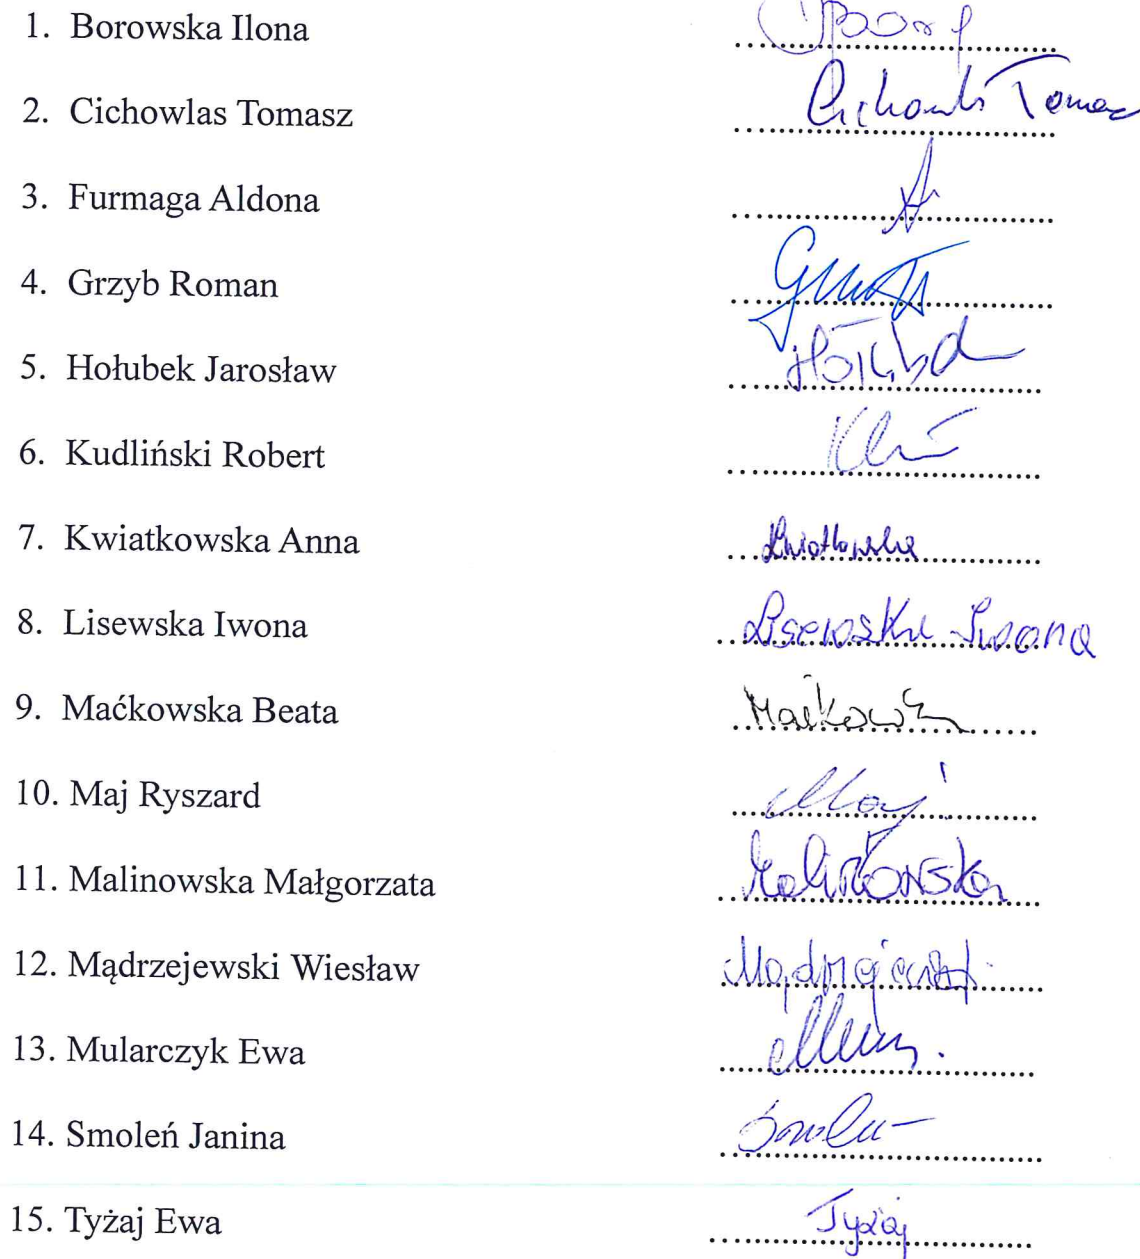 1. Borowska Ilona
2. Cichowlas Tomasz Cichowlas Tomasz
3. Furmaga Aldona
4. Grzyb Roman
5. Hołubek Jarosław
6. Kudliński Robert
7. Kwiatkowska Anna Kwiatkowska
8. Lisewska Iwona Lisewska Iwona
9. Maćkowska Beata
10. Maj Ryszard Maj
11. Malinowska Małgorzata Malinowska
12. Mądrzejewski Wiesław
13. Mularczyk Ewa
14. Smoleń Janina
15. Tyżaj Ewa Tyżaj